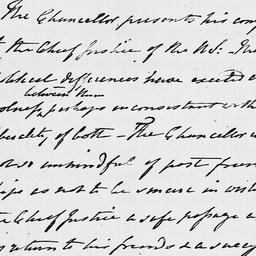 The Chancellor presents his com
the Chief Justice of the US: The
political differences have excited a
between them
coolness, perhaps inconsistent with
liberality of both - The Chancellor is
not so unmindful of past friend
ships as not to be sincere in wish
the Chief Justice a safe passage a
return to his friends & a succes